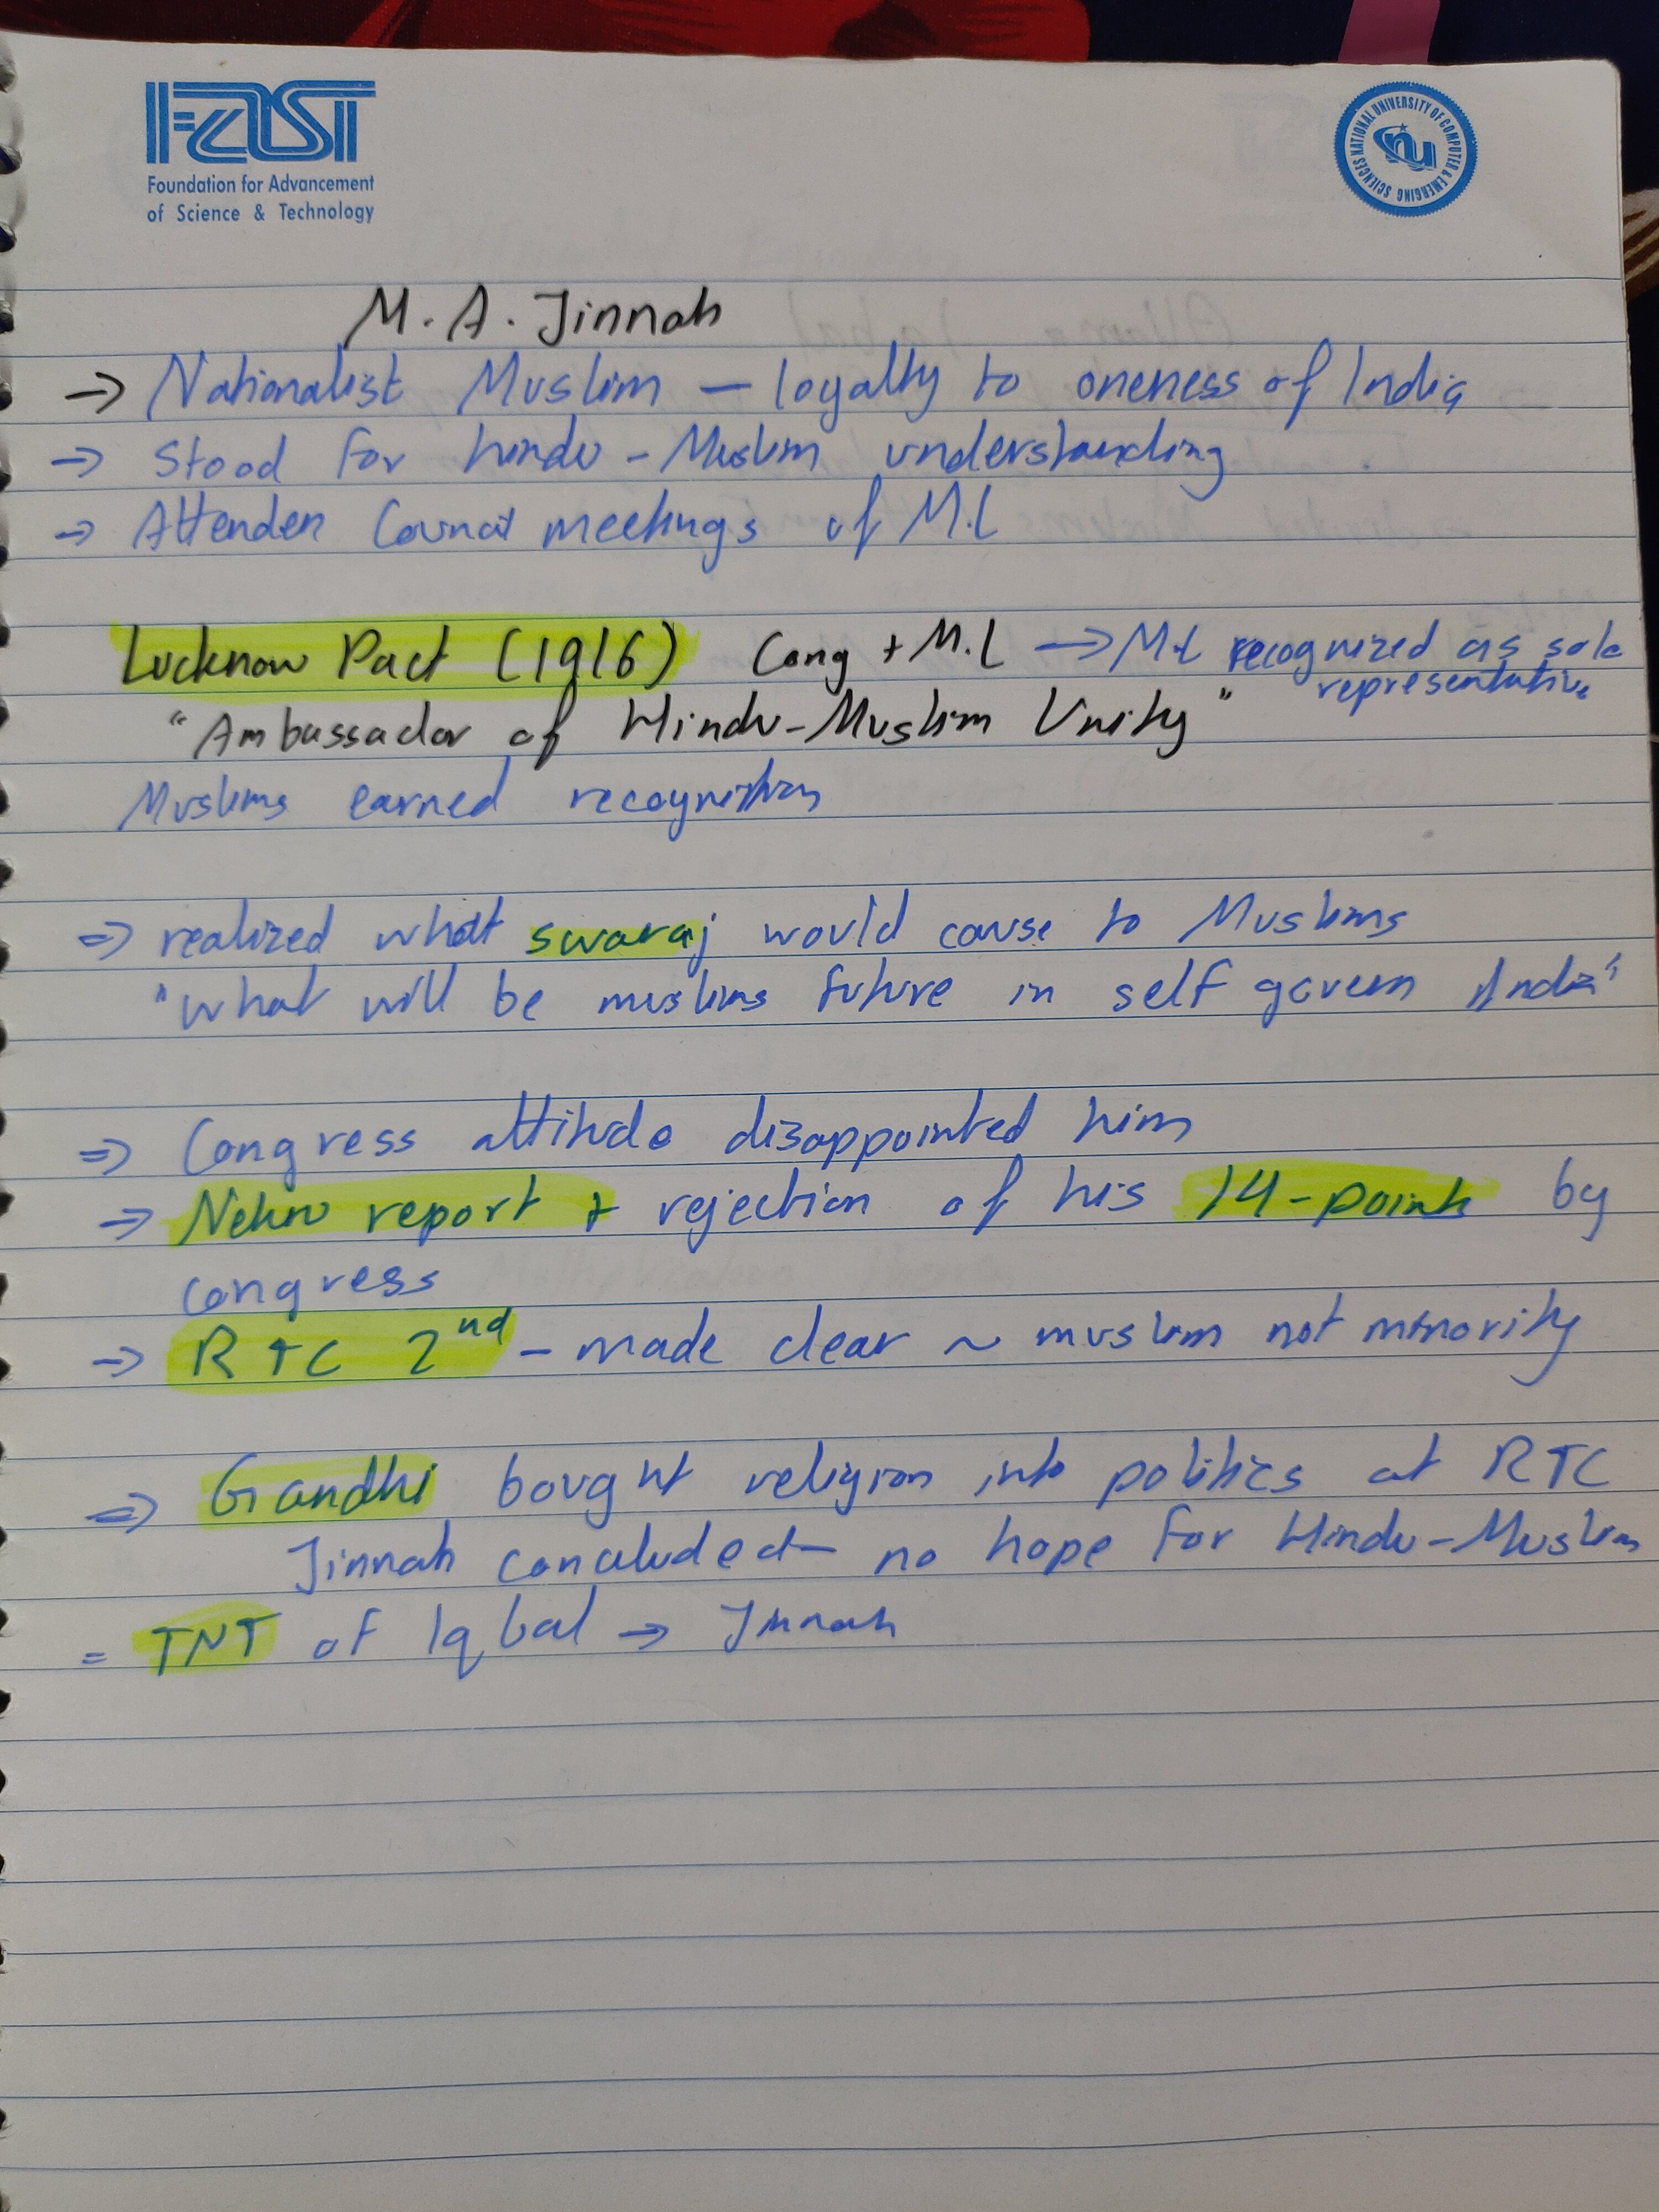 FAST
Foundation for Advancement
of Science & Technology
NATIONAL UNIVERSITY OF COMPUTER & EMERGING SCIENCES
nu
M. A. Jinnah
→ Nationalist Muslim – loyalty to oneness of India
→ Stood for hindu - Muslim understanding
→ Attended Council meetings of M.L
Lucknow Pact (1916) Cong + M.L → M.L recognized as sole
representative
"Ambassador of Hindu-Muslim Unity"
Muslims earned recognition
⇒ realized what swaraj would cause to Muslims
"What will be muslims future in self govern India"
⇒ Congress attitude disappointed him
⇒ Nehru report + rejection of his 14-points by
congress
⇒ RTC 2nd – made clear ~ muslim not minority
⇒ Gandhi bought religion into politics at RTC
Jinnah concluded – no hope for Hindu-Muslim
= TNT of Iqbal → Jinnah